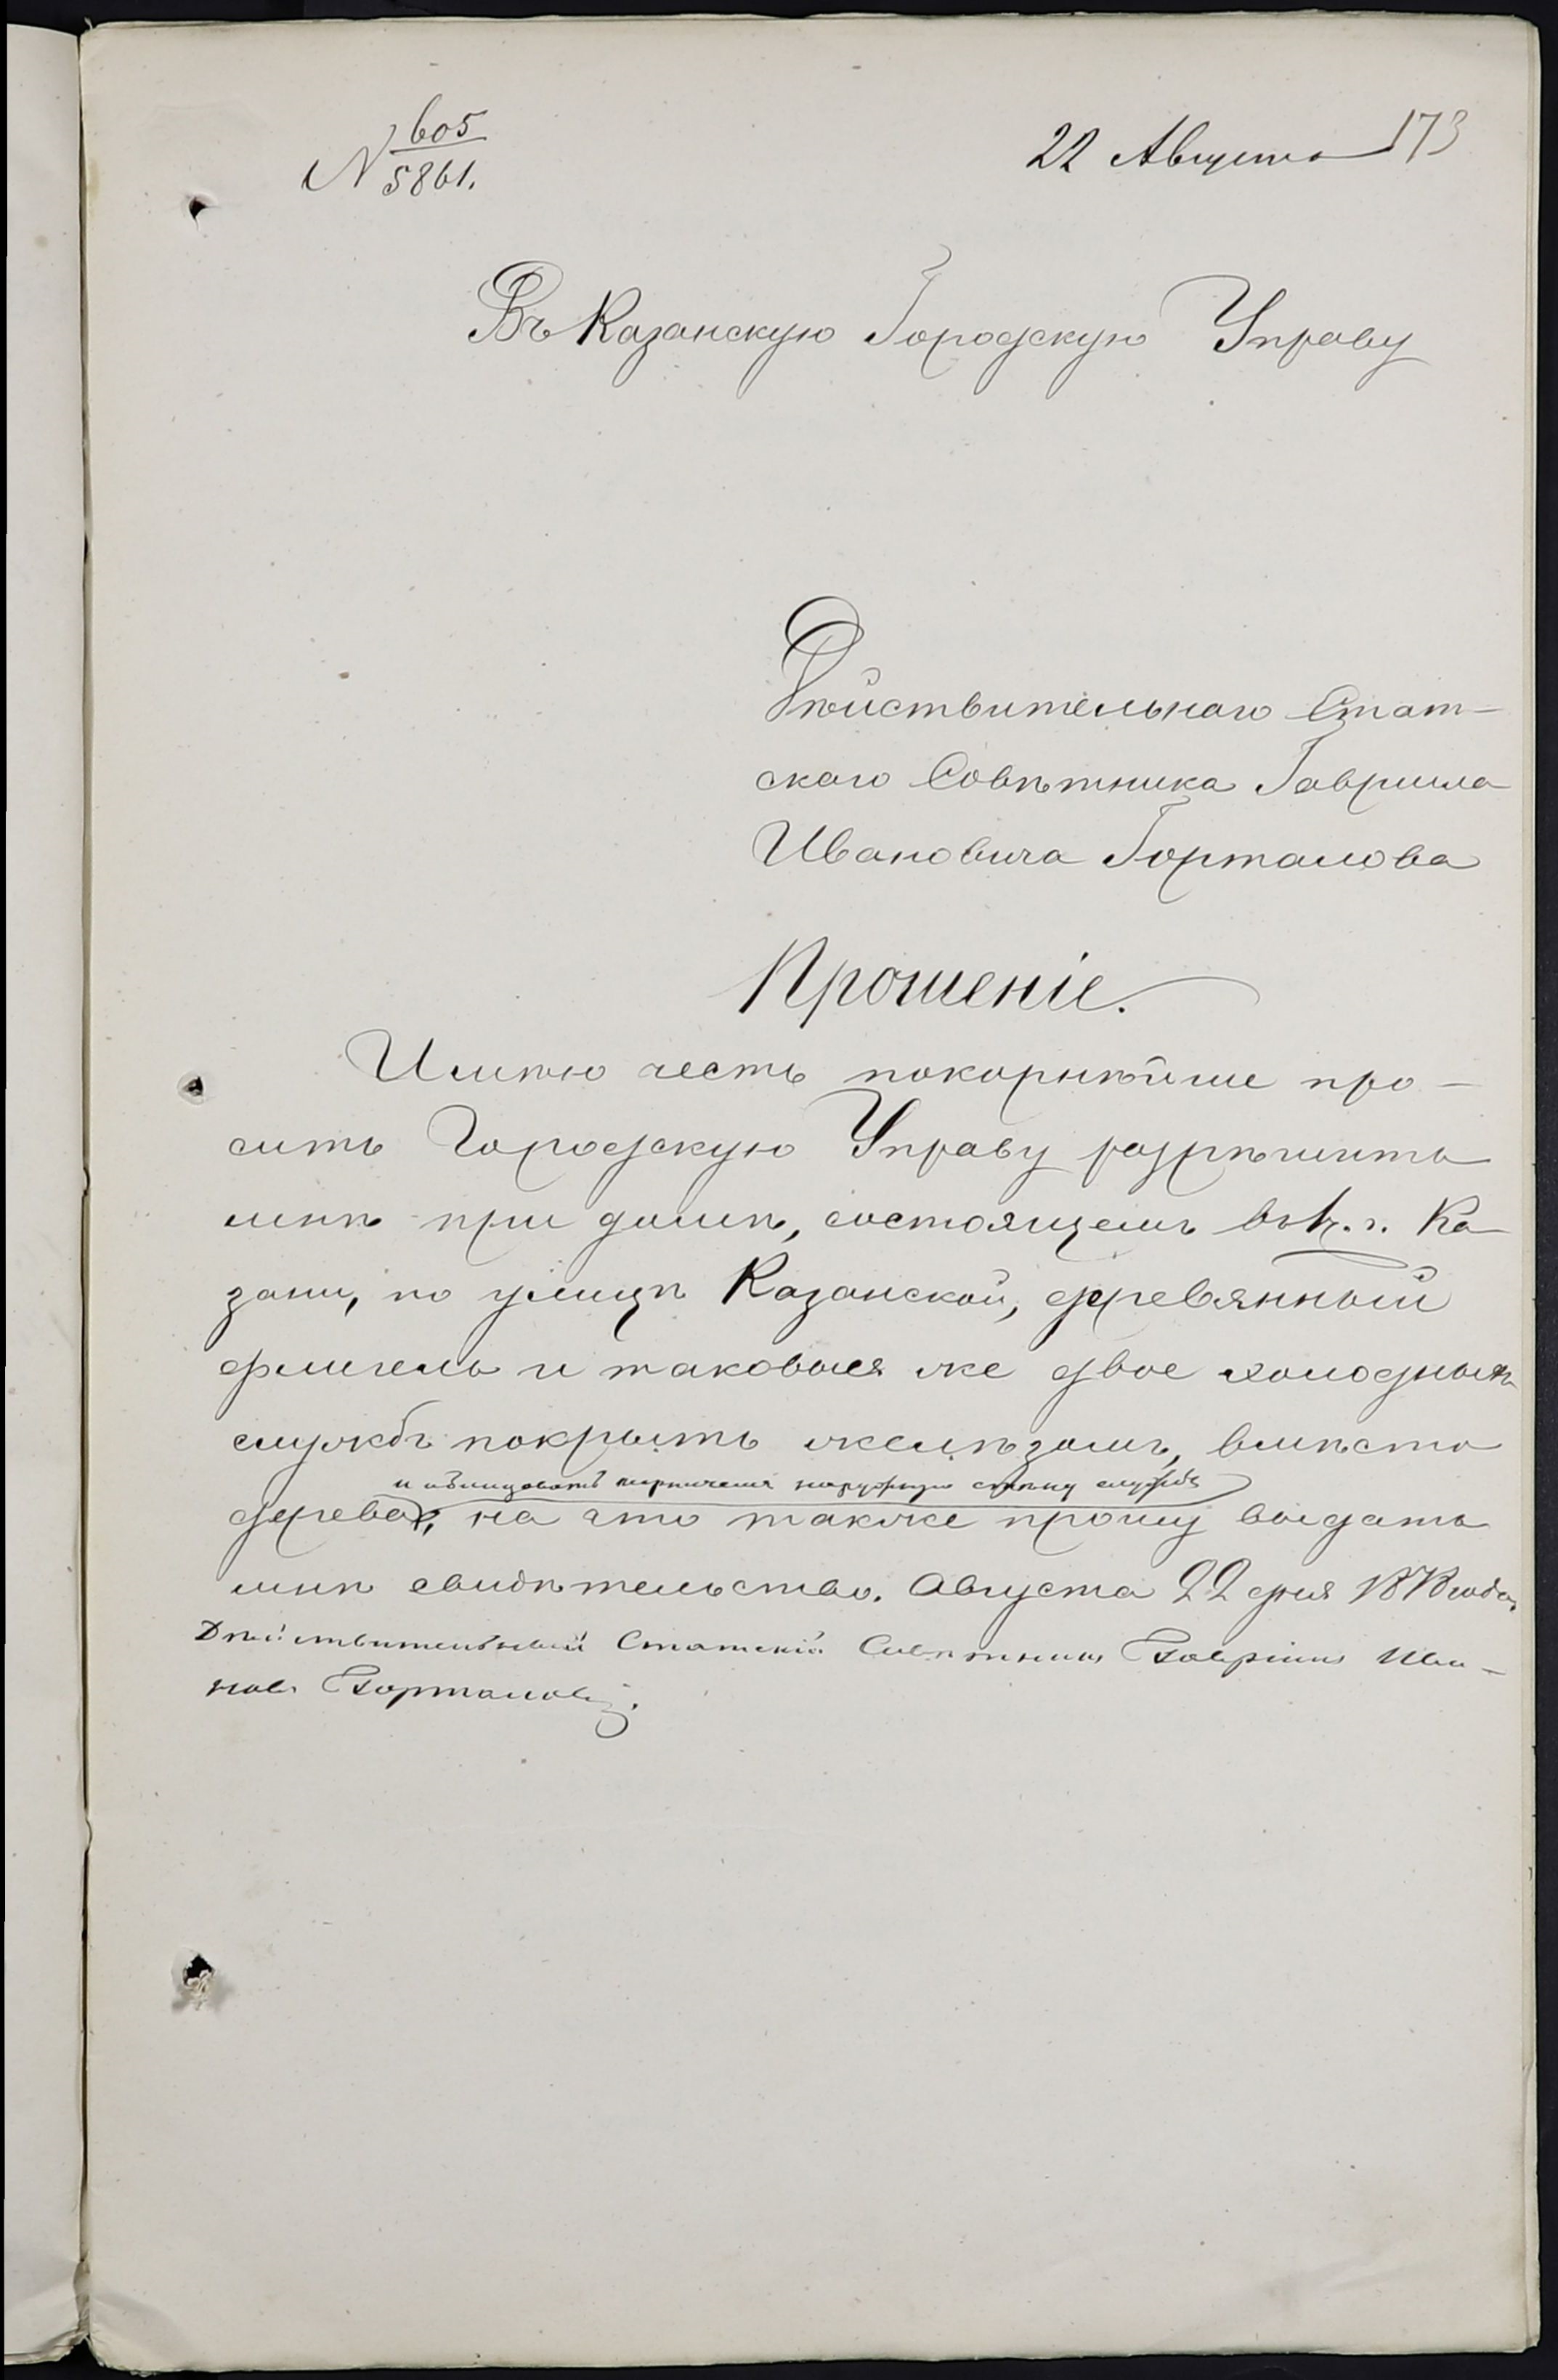 N 605
5861.
22 Августа 173
Въ Казанскую Городскую Управу
Дѣйствительнаго Стат-
скаго Совѣтника Гавриила
Ивановича Горталова
Прошеніе.
Имѣю честь покорнѣйше про-
сить Городскую Управу разрѣшить
мнѣ при домѣ, состоящемъ въ г. Ка
зани, по улицѣ Казанской, деревянный
флигель и таковыя же двое холодныхъ
службъ покрыть желѣзомъ, вмѣсто
и облицовать кирпичемъ наружную стѣну службъ
дерева, на что также прошу выдать
мнѣ свидѣтельство. Августа 22 дня 1878 года.
Дѣйствительный Статскій Совѣтникъ Гавріилъ Ива-
новъ Горталовъ.